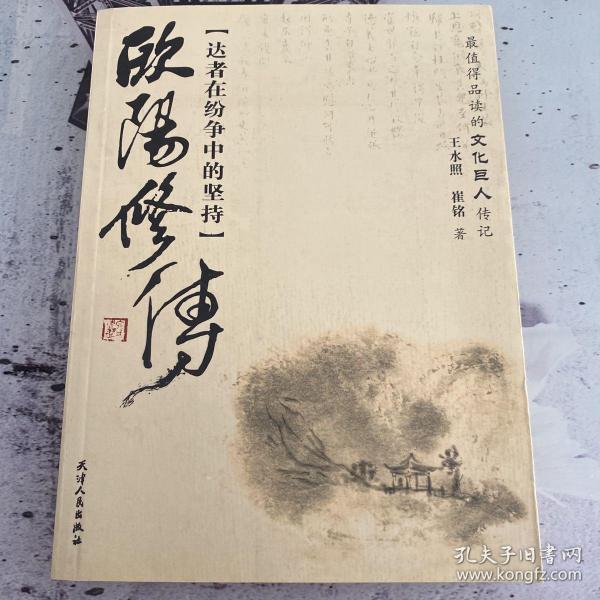 歐陽修傳
【达者在纷争中的坚持】
最值得品读的文化巨人传记
王水照 崔铭 著
天津人民出版社
孔夫子旧书网
www.kongfz.com